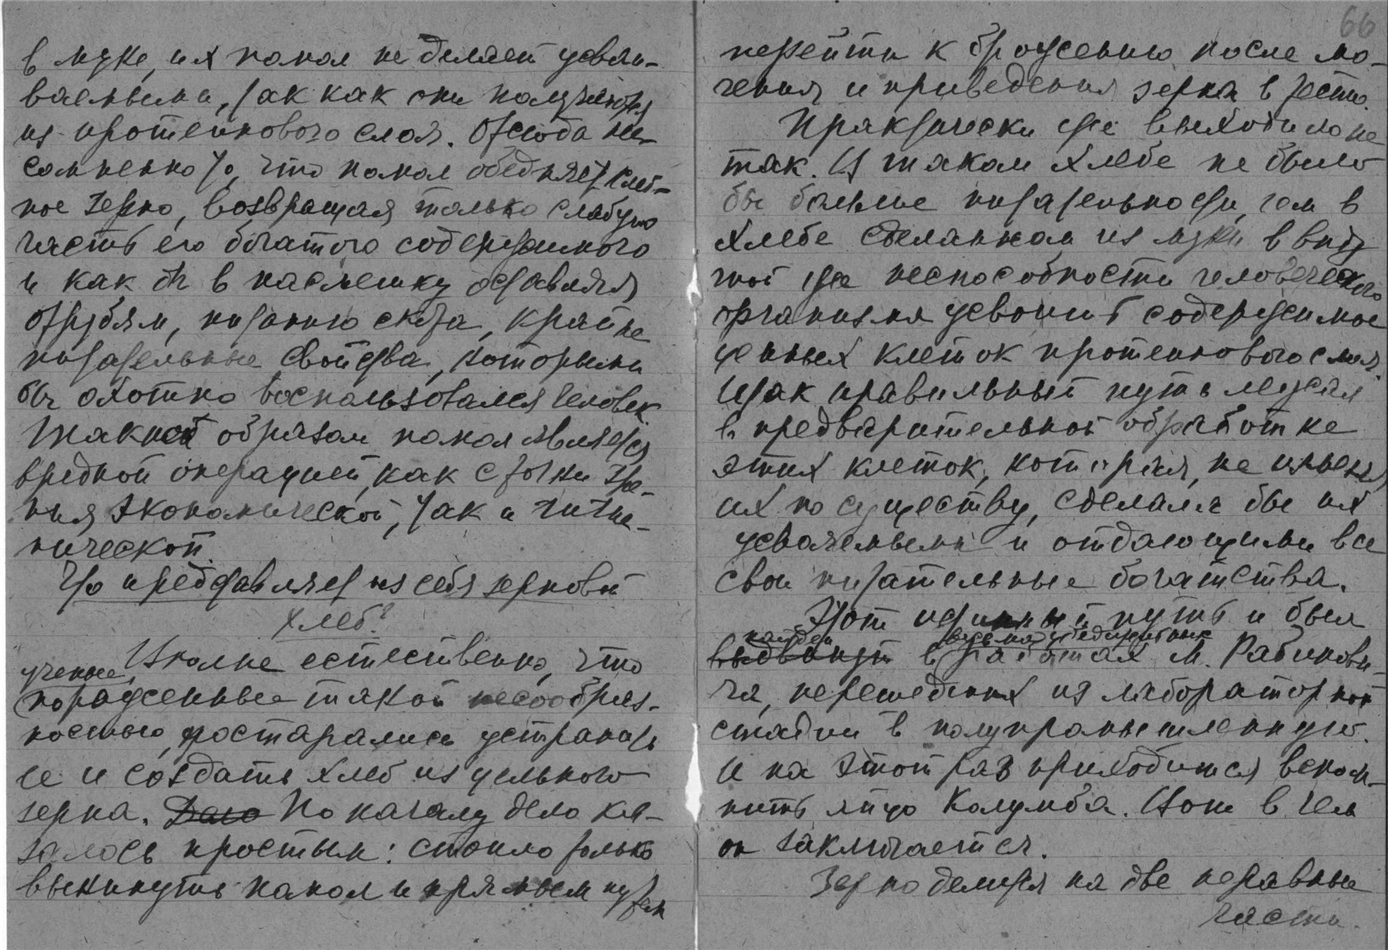 в муке, и их помол не делает усвои-
ваемыми, так как они получаются
из протеинового слоя. Отсюда не-
сомненно то, что помол обедняет хлеб-
ное зерно, возвращая только слабую
часть его богатого содержимого
и как бы в насмешку оставляя
отрубям, питанию скота, крайне
питательные свойства, которыми
бы охотно воспользовался человек
Таким образом помол является
вредной операцией, как с точки зре-
ния экономической, так и гигие-
нической.
Что представляет из себя зерновой
хлеб?
Вполне естественно, что
ученые,
пораженные такой несообраз-
ностью, постарались устранить
ее и создать хлеб из цельного
зерна. Дело По началу дело ка-
залось простым: стоило только
выкинуть помол и прямым путем
66
перейти к брожению после мо-
чения и приведения зерна в тесто.
Практически это выходило не
так. И в таком хлебе не было
бы больше питательности, чем в
хлебе сделанном из муки в виду
той же неспособности человеческого
организма усвоить содержимое
ценных клеток протеинового слоя.
Итак правильный путь лежал
в предварительной обработке
этих клеток, которая, не изменяя
их по существу, сделала бы их
усвояемыми и отдающими все
свои питательные богатства.
Этот истинный путь и был
найден
выдвинут в работах М. Рабинови-
ча, перешедших из лабораторной
стадии в полупромышленную.
И на этот раз приходится вспом-
нить яйцо Колумба. Вот в чем
он заключается.
Зерно делится на две неравные
части.